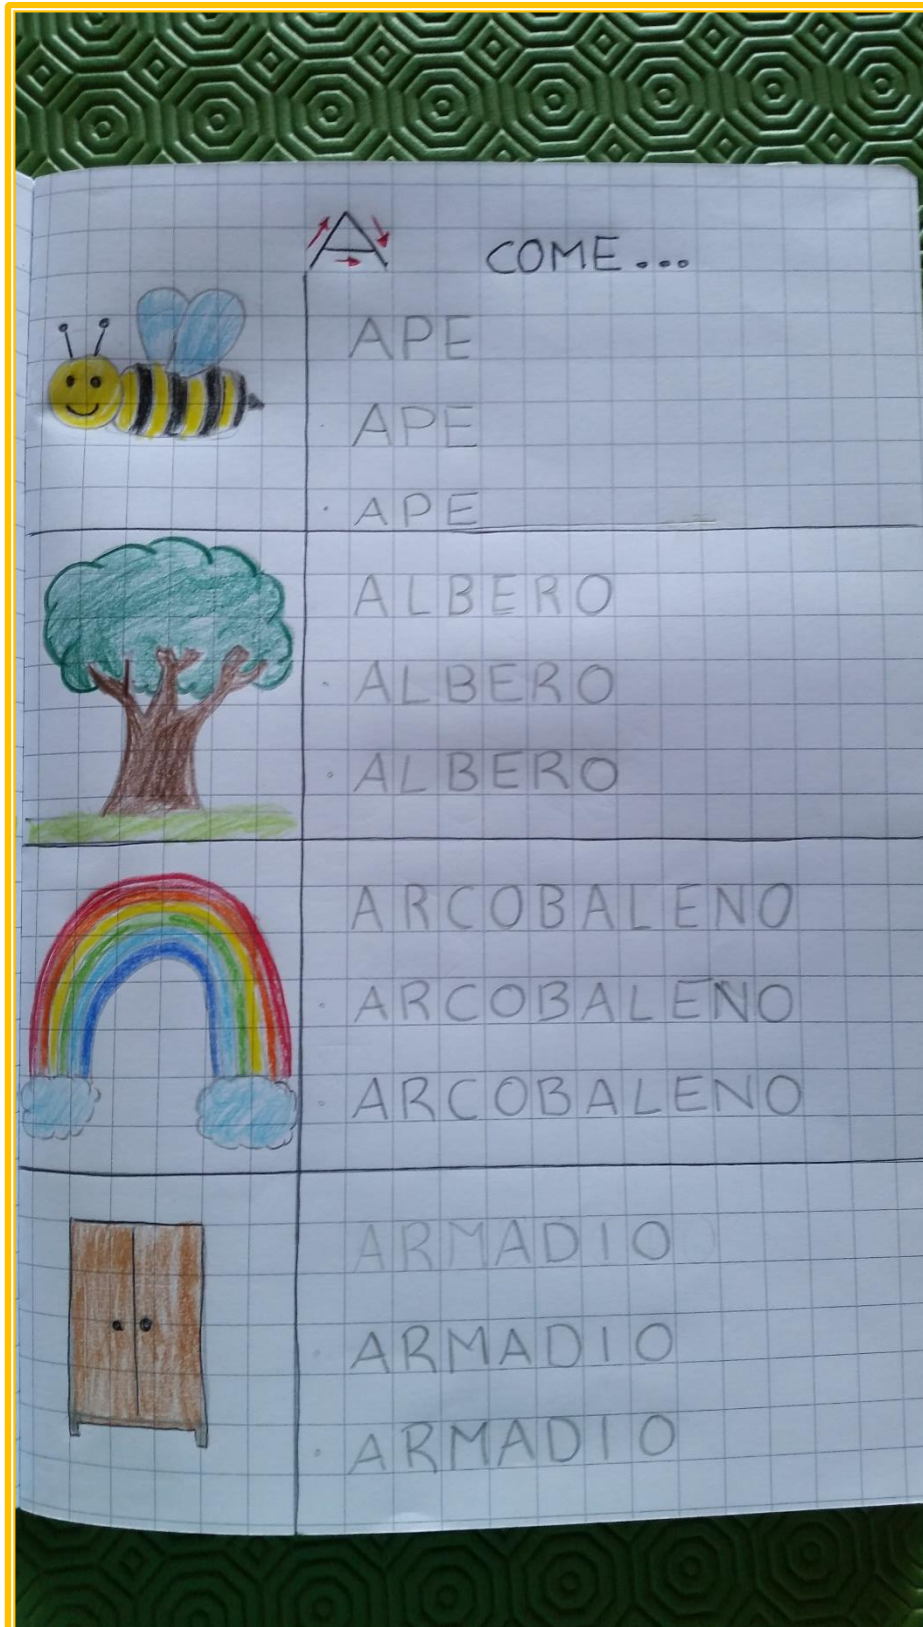 A COME...
APE
APE
APE
ALBERO
ALBERO
ALBERO
ARCOBALENO
ARCOBALENO
ARCOBALENO
ARMADIO
ARMADIO
ARMADIO